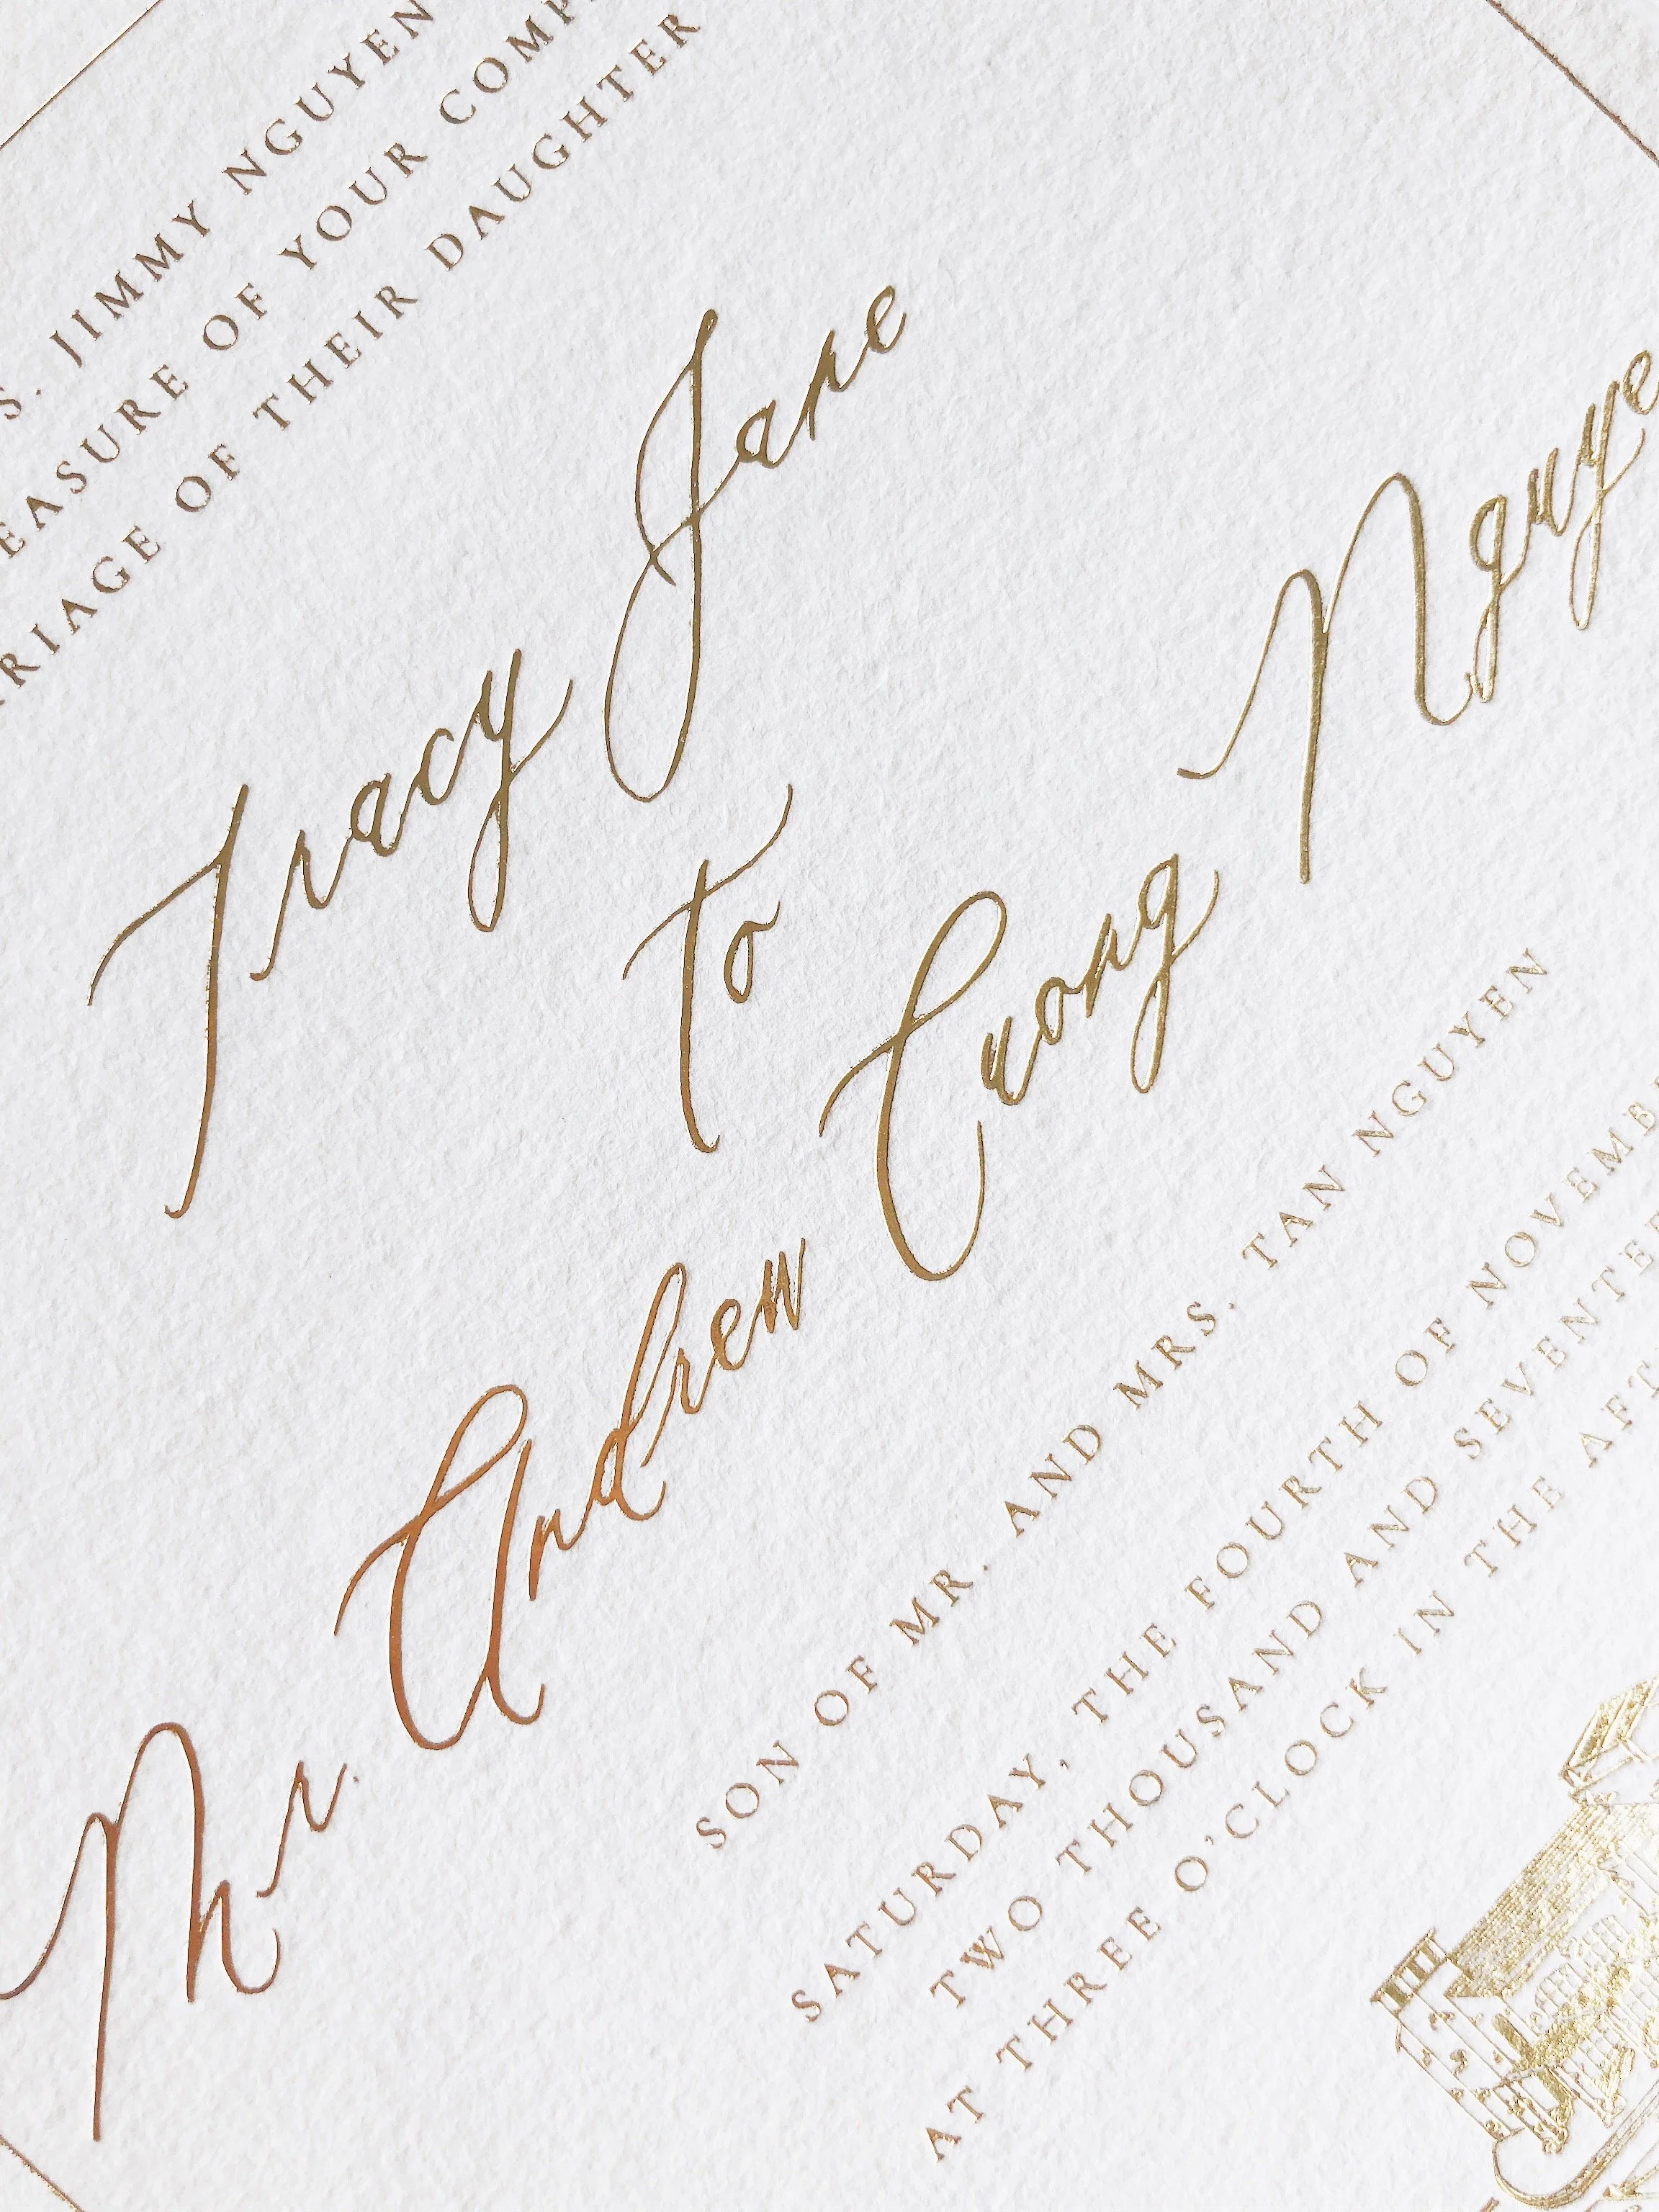 S. JIMMY NGUYEN
EASURE OF YOUR COMP
RIAGE OF THEIR DAUGHTER
Tracy Jane
to
Mr. Andrew Cuong Nguye
SON OF MR. AND MRS. TAN NGUYEN
SATURDAY, THE FOURTH OF NOVEMBE
TWO THOUSAND AND SEVENTE
AT THREE O'CLOCK IN THE AFT